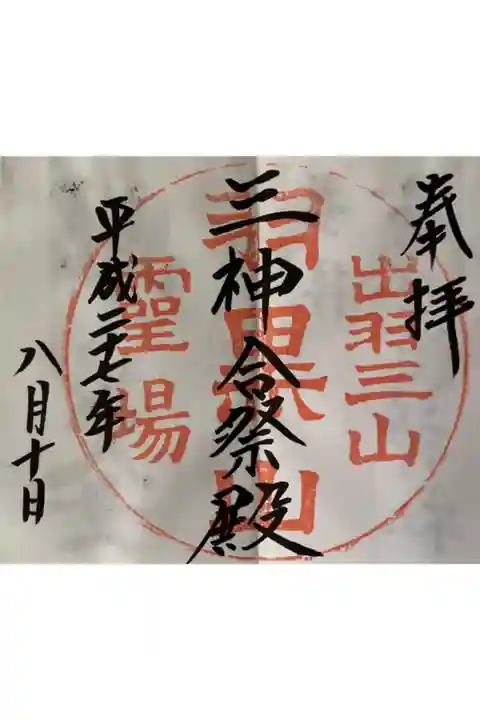 奉拝
出羽三山
三神合祭殿
羽黒山
平成二十七年
霊場
八月十日